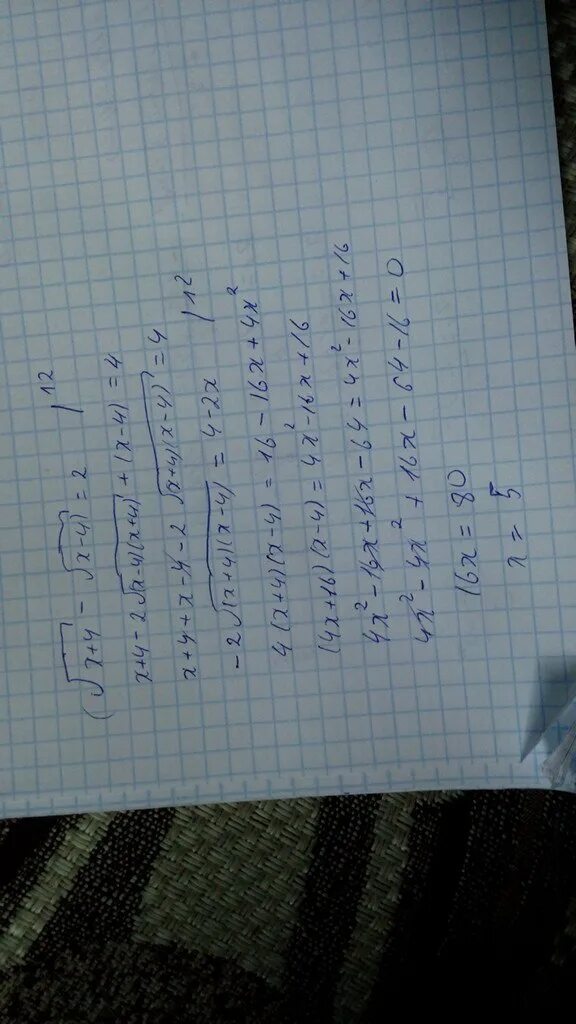 (√(x+4) - √(x-4)) = 2 |↑2
x+4-2√((x-4)(x+4)) + (x-4) = 4
x+4+x-4-2√((x+4)(x-4)) = 4
-2√((x+4)(x-4)) = 4-2x |↑2
4(x+4)(x-4) = 16-16x+4x²
(4x+16)(x-4) = 4x²-16x+16
4x²-16x+16x-64 = 4x²-16x+16
4x²-4x²+16x-64-16=0
16x = 80
x = 5